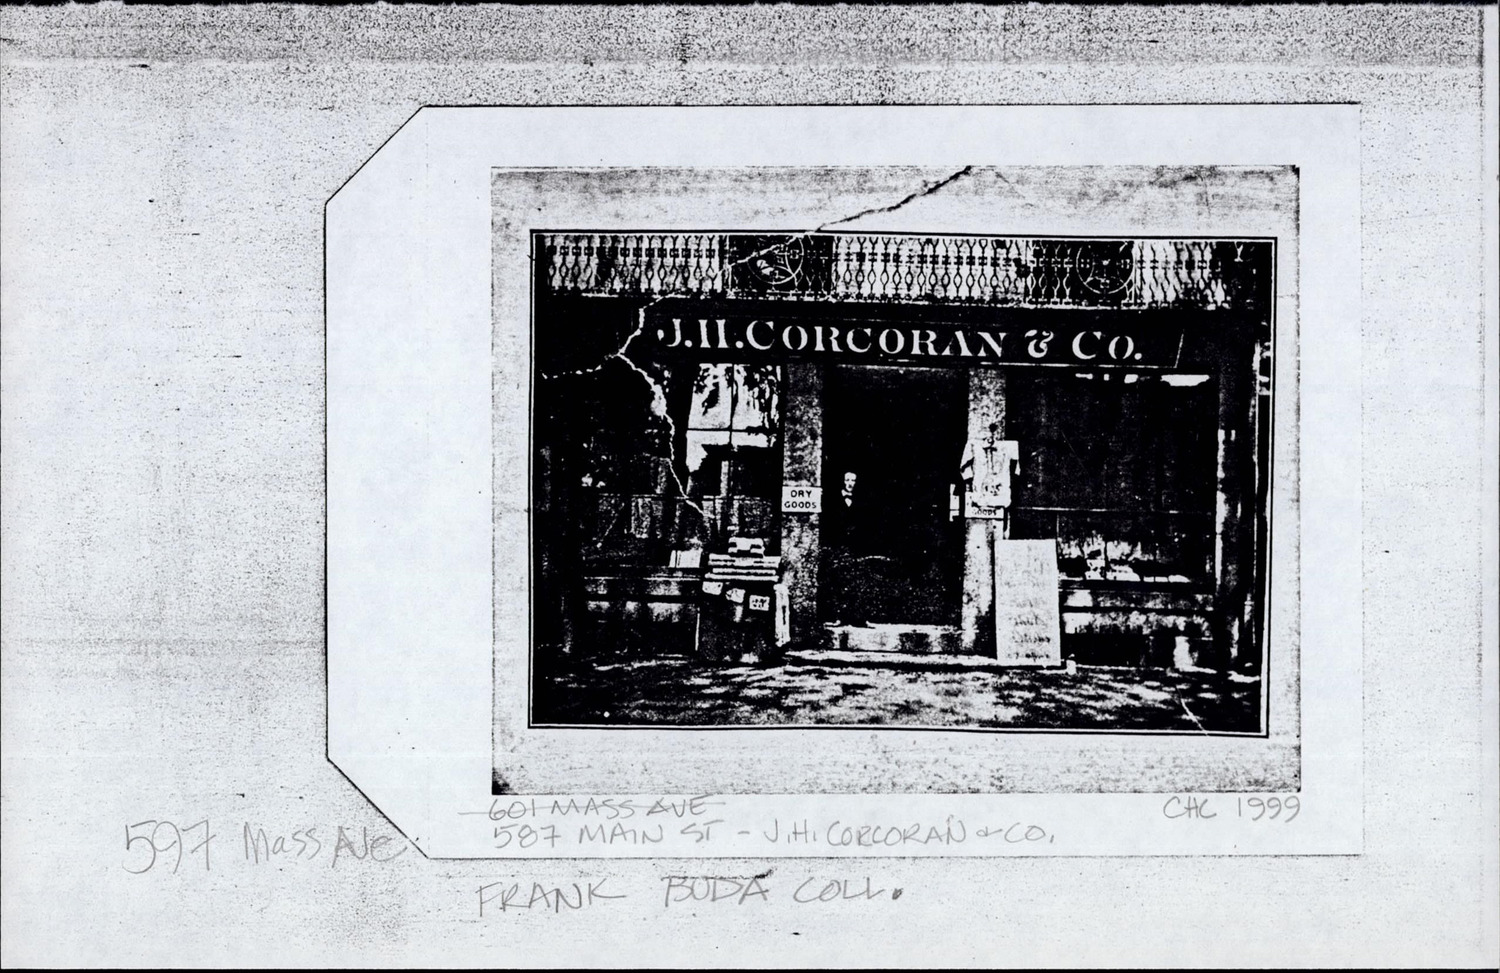 J.H. CORCORAN & CO.
DRY
GOODS
GOODS
601 MASS AVE
CHC 1999
587 MAIN ST - J.H. CORCORAN & CO.
597 Mass Ave
FRANK BUDA COLL.